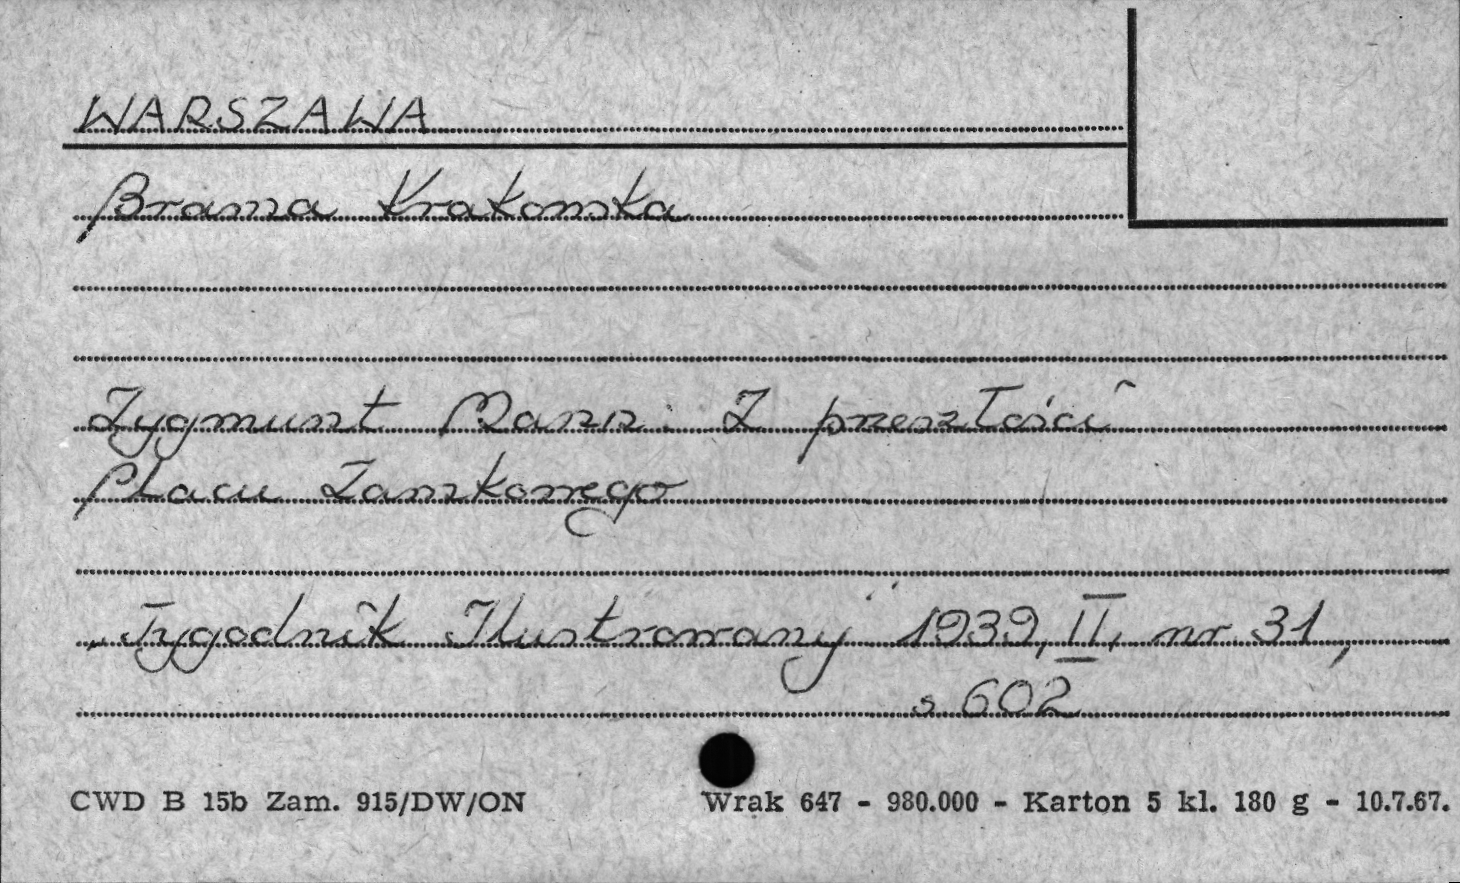 WARSZAWA
Brama Krakowska
Zygmunt Mann: Z przeszłości
Placu Zamkowego
„Tygodnik Ilustrowany" 1939, II, nr 31,
s 602
CWD B 15b Zam. 915/DW/ON Wrak 647 - 980.000 - Karton 5 kl. 180 g - 10.7.67.